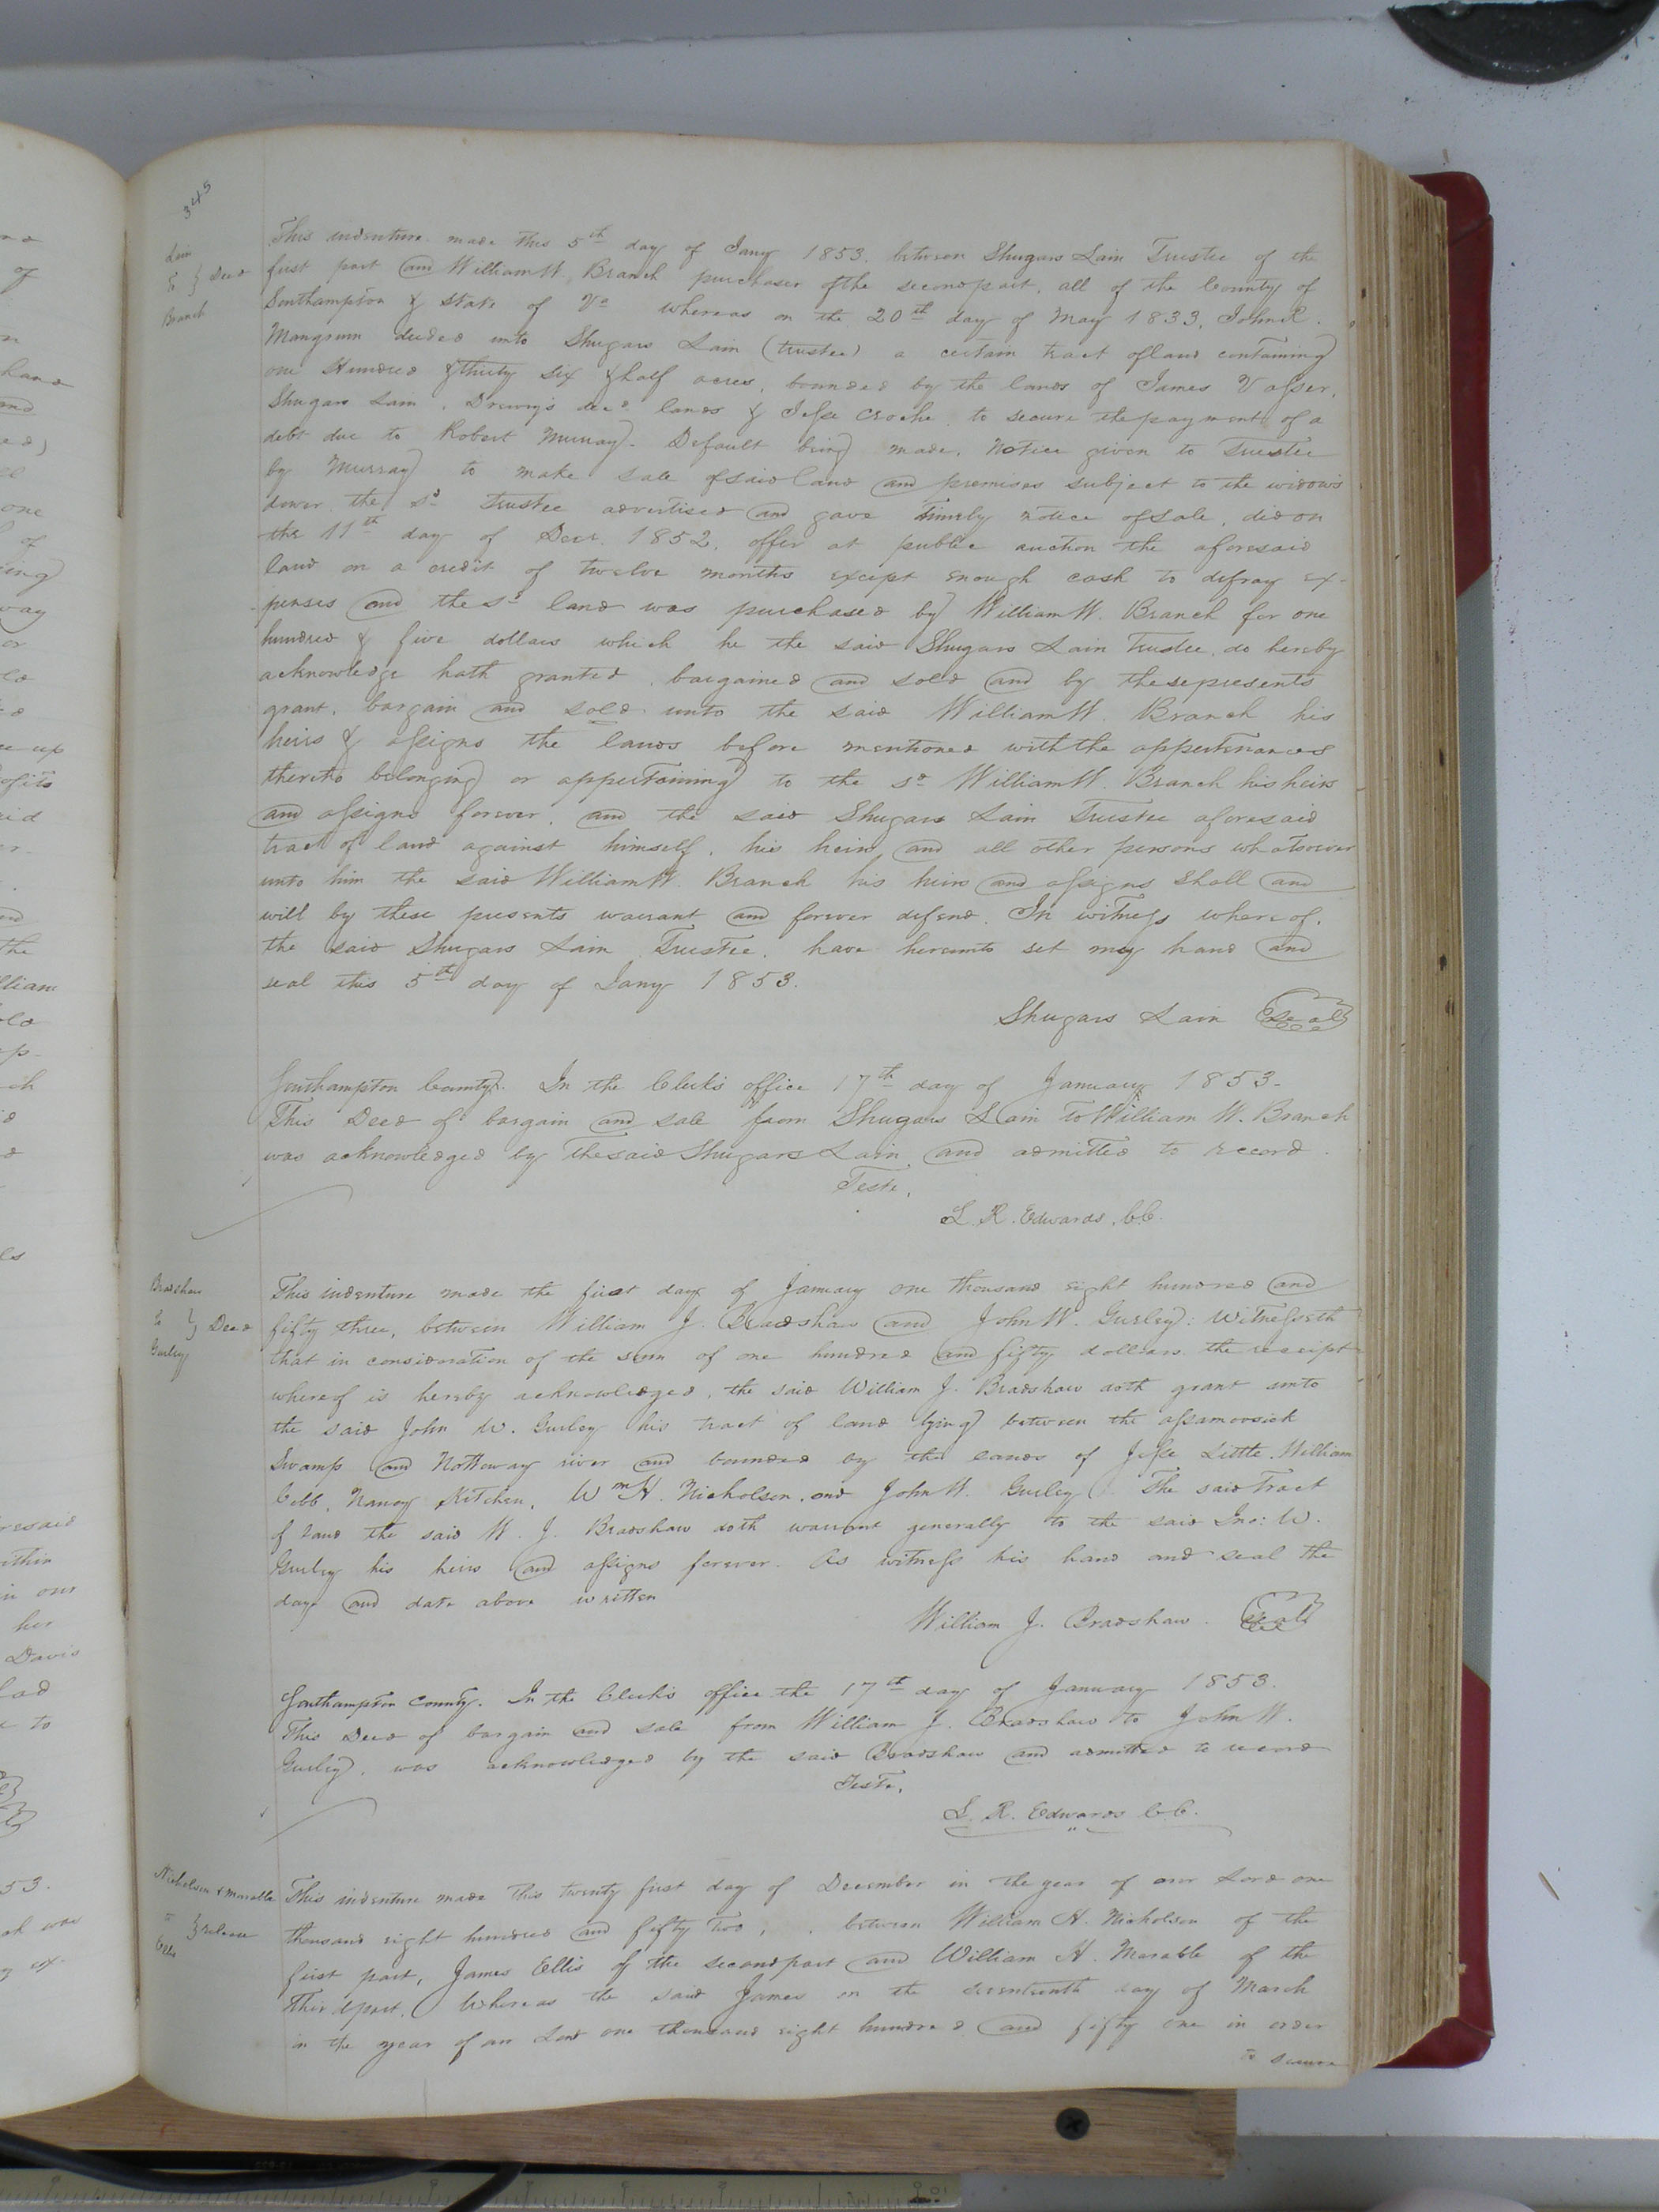 345
Lain
to } Deed
Branch
This indenture made this 5th day of Jany 1853. between Shugars Lain Trustee of the
first part and William W. Branch purchaser of the second part, all of the County of
Southampton & state of Va whereas on the 20th day of May 1833, John R.
Mangrum deeded unto Shugars Lain (trustee) a certain tract of land containing
one Hundred & thirty six & half acres, bounded by the lands of James Vasser,
Shugars Lain, Drewry's decd. lands & Jesse Croche to secure the payment of a
debt due to Robert Murray. Default being made, Notice given to Trustee
by Murray to make sale of said land and premises subject to the widows
dower the sd. trustee advertised and gave timely notice of sale, did on
the 11th day of Decr. 1852, offer at public auction the aforesaid
land on a credit of twelve months except enough cash to defray ex-
penses and the sd. land was purchased by William W. Branch for one
hundred & five dollars which he the said Shugars Lain Trustee, do hereby
acknowledge hath granted, bargained and sold and by these presents
grant, bargain and sold unto the said William W. Branch his
heirs & assigns the lands before mentioned with the appertenances
thereto belonging or appertaining to the sd. William W. Branch his heirs
and assigns forever, and the said Shugars Lain Trustee aforesaid
tract of land against himself, his heirs and all other persons whatsoever
unto him the said William W. Branch his heirs and assigns shall and
will by these presents warrant and forever defend. In witness whereof,
the said Shugars Lain Trustee, have hereunto set my hand and
seal this 5th day of Jany 1853.
Shugars Lain Seal
Southampton County. In the Clerk's office 17th day of January 1853-
This Deed of bargain and sale from Shugars Lain to William W. Branch
was acknowledged by the said Shugars Lain and admitted to record.
Teste,
L. R. Edwards, C.C.
Bradshaw
to } Deed
Gurley
This indenture made the first day of January one thousand eight hundred and
fifty three, between William J. Bradshaw and John W. Gurley: Witnesseth
that in consideration of the sum of one hundred and fifty dollars the receipt
whereof is hereby acknowledged, the said William J. Bradshaw doth grant unto
the said John W. Gurley his tract of land lying between the assamoosick
Swamp and Nottoway river and bounded by the lands of Jesse Little, William
Cobb, Nancy Kitchen, Wm H. Nicholson, and John W. Gurley. The said tract
of land the said W. J. Bradshaw doth warrant generally to the said Jno: W.
Gurley his heirs and assigns forever. As witness his hand and seal the
day and date above written
William J. Bradshaw. Seal
Southampton County. In the Clerk's office the 17th day of January 1853.
This Deed of bargain and sale from William J. Bradshaw to John W.
Gurley, was acknowledged by the said Bradshaw and admitted to record
Teste,
L. R. Edwards C.C.
Nicholson & Marable
to } release
Ellis
This indenture made this twenty first day of December in the year of our Lord one
thousand eight hundred and fifty two, between William H. Nicholson of the
first part, James Ellis of the second part and William H. Marable of the
third part. Whereas the said James on the seventeenth day of March
in the year of our Lord one thousand eight hundred and fifty one in order
to secure